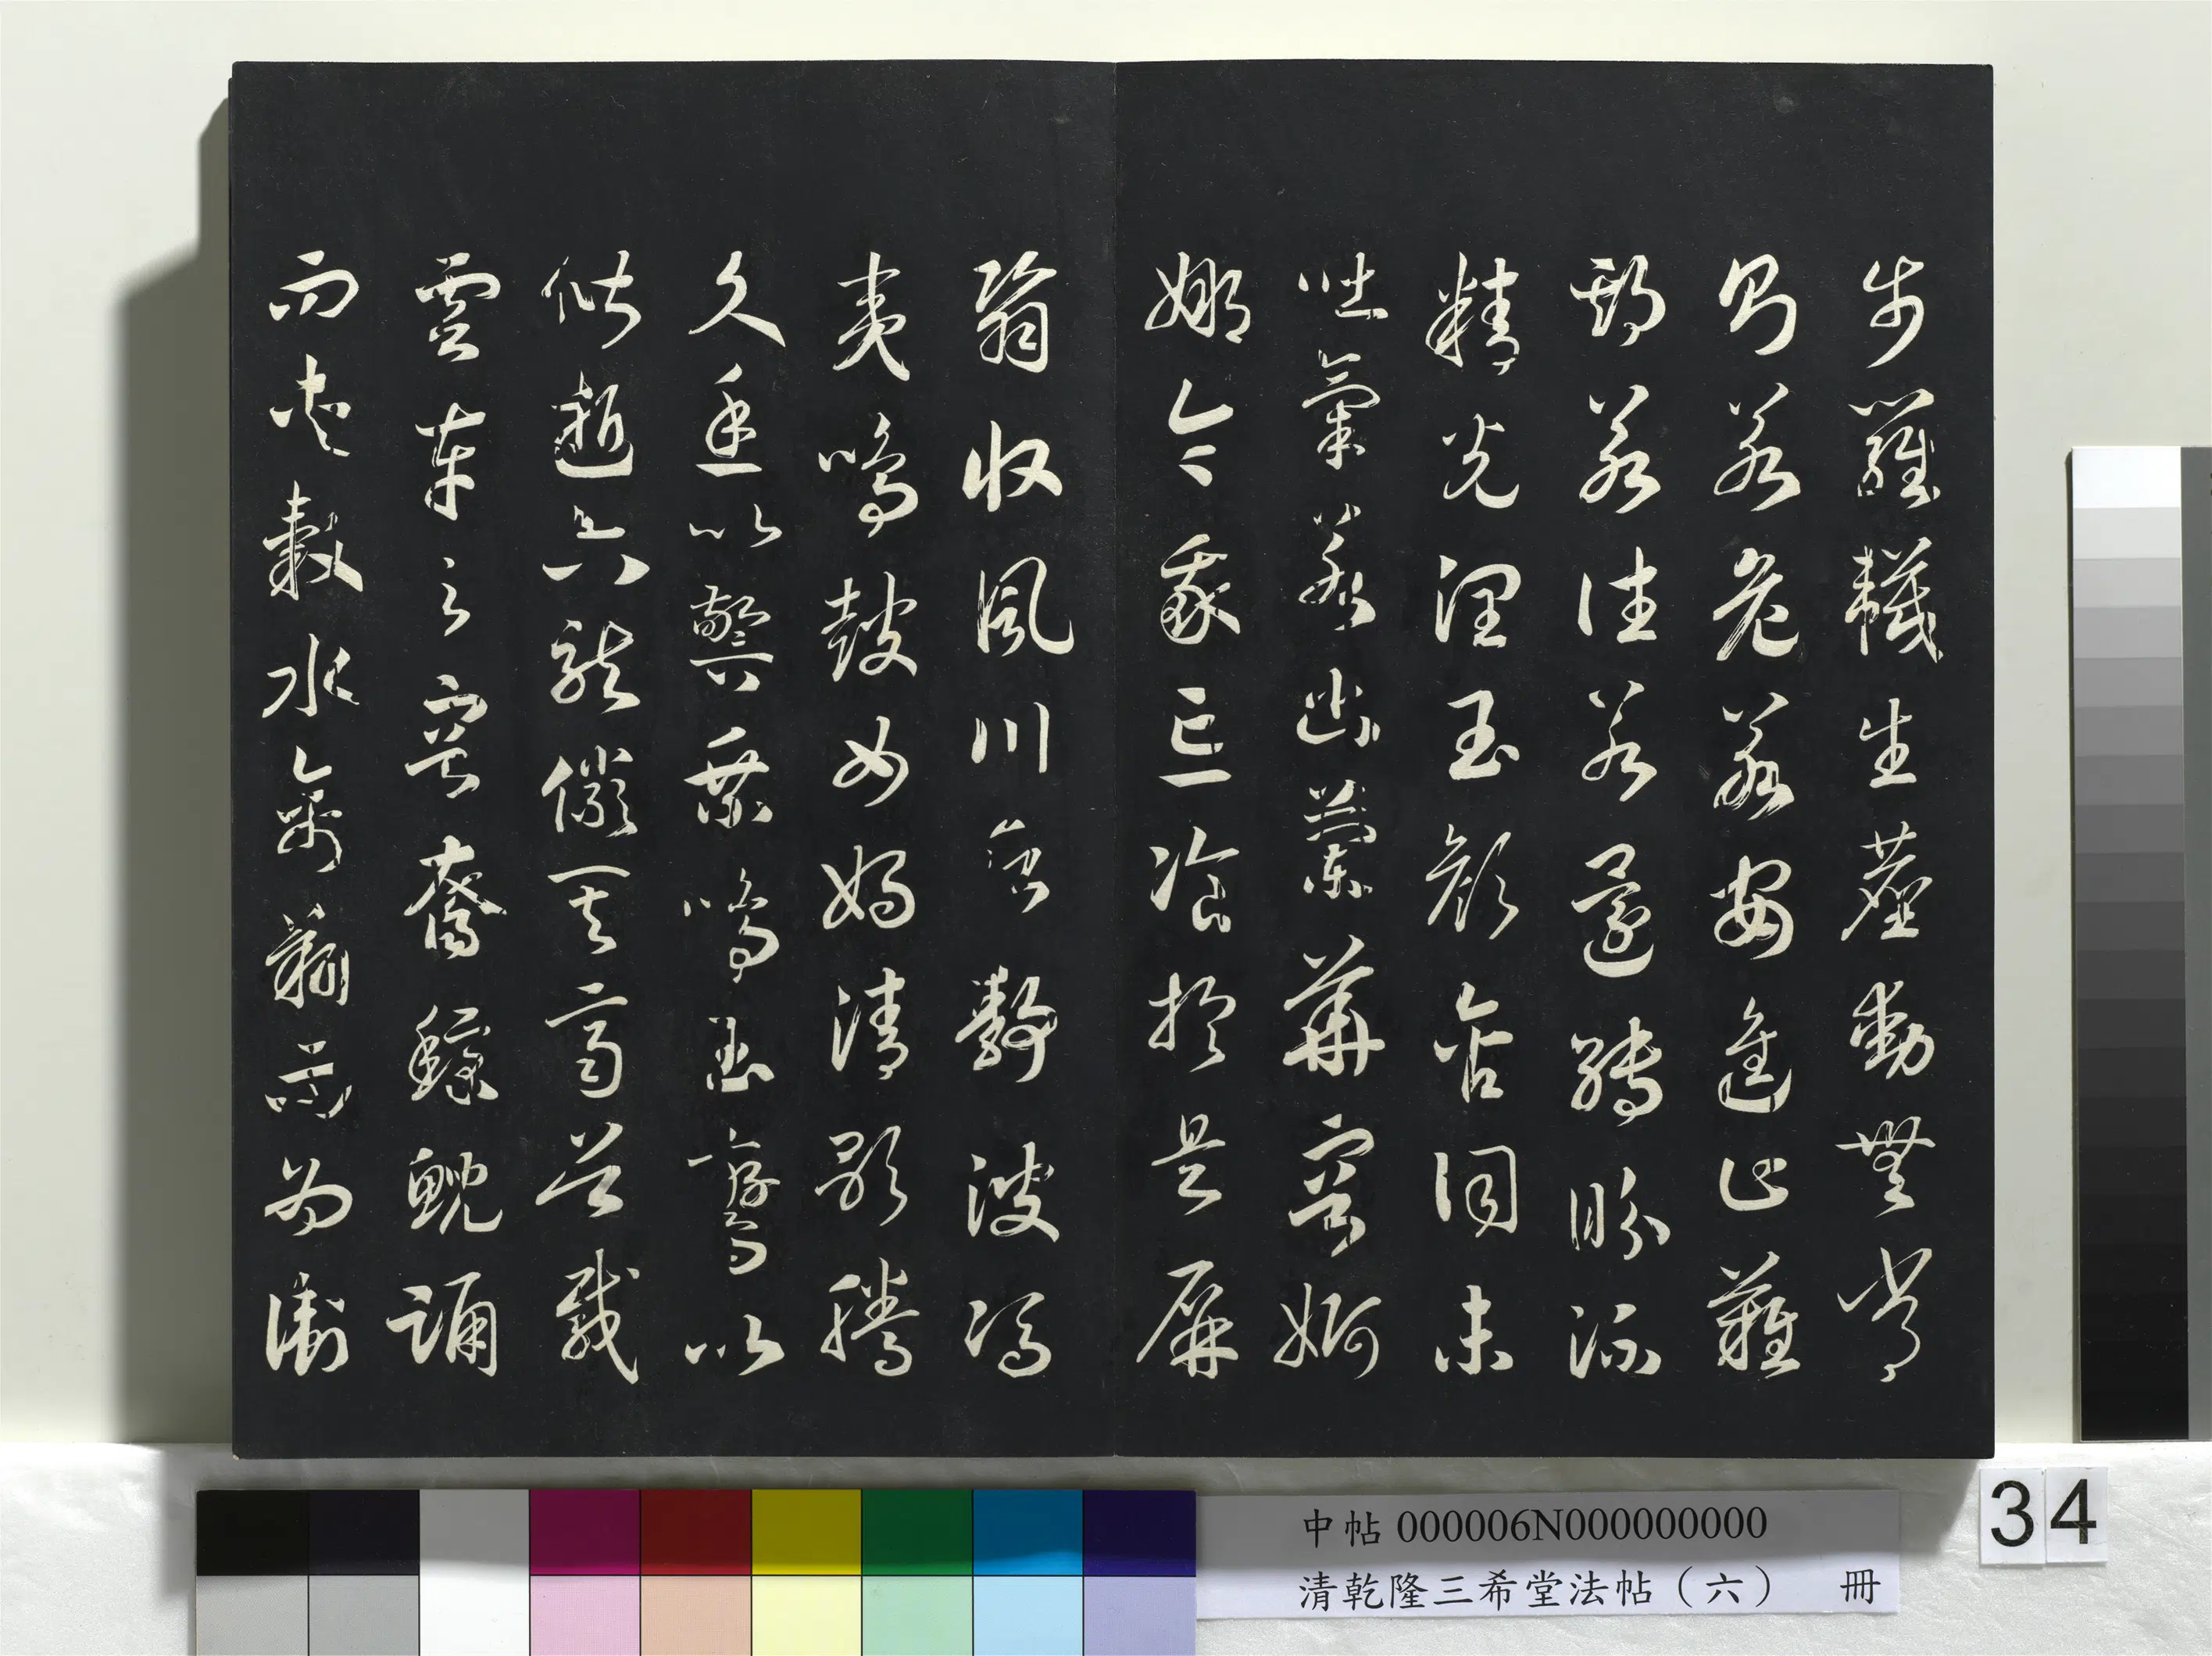 步羅韈生塵動無常
則若危若安進止難
期若往若還轉眄流
精光潤玉顏含詞未
吐氣若幽蘭華容婀
娜令我忘飡於是屏
翳收風川后靜波馮
夷鳴鼓女媧清歌騰
文魚以警乘鳴玉鸞以
偕逝六龍儼其齊首載
雲車之容裔鯨鯢踊
而夾轂水禽翔而為衛
中帖 000006N000000000
清乾隆三希堂法帖(六) 冊
34